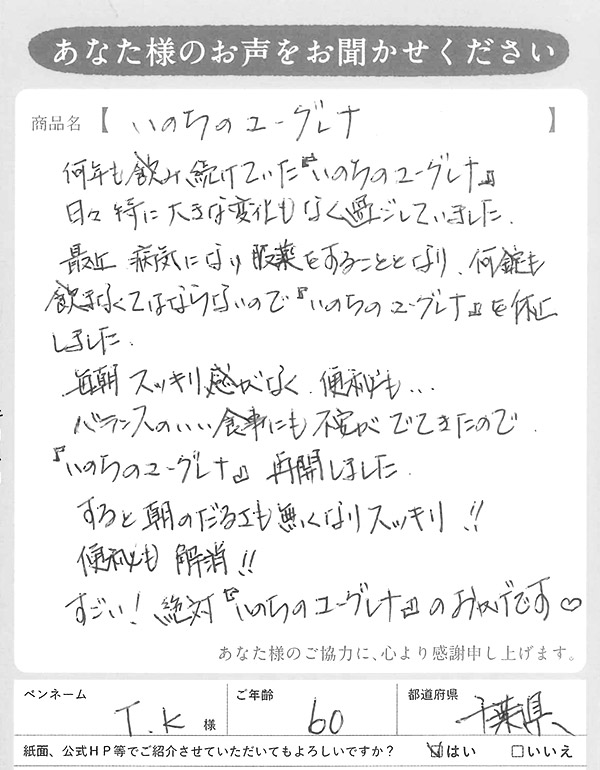 あなた様のお声をお聞かせください
商品名【 いのちのユーグレナ 】
何年も飲み続けていた『いのちのユーグレナ』
日々特に大きな変化もなく過ごしていました.
最近 病気になり服薬をすることとなり、何錠も
飲まなくてはならないので『いのちのユーグレナ』を休止
しました.
毎朝スッキリ感がなく、便秘も…
バランスのいい食事にも不安がでてきたので.
『いのちのユーグレナ』再開しました.
すると朝のだるさも無くなりスッキリ!!
便秘も解消!!
すごい!絶対『いのちのユーグレナ』のおかげです♡
あなた様のご協力に、心より感謝申し上げます。
ペンネーム T.K 様 ご年齢 60 都道府県 千葉県
紙面、公式HP等でご紹介させていただいてもよろしいですか? ☑はい □いいえ